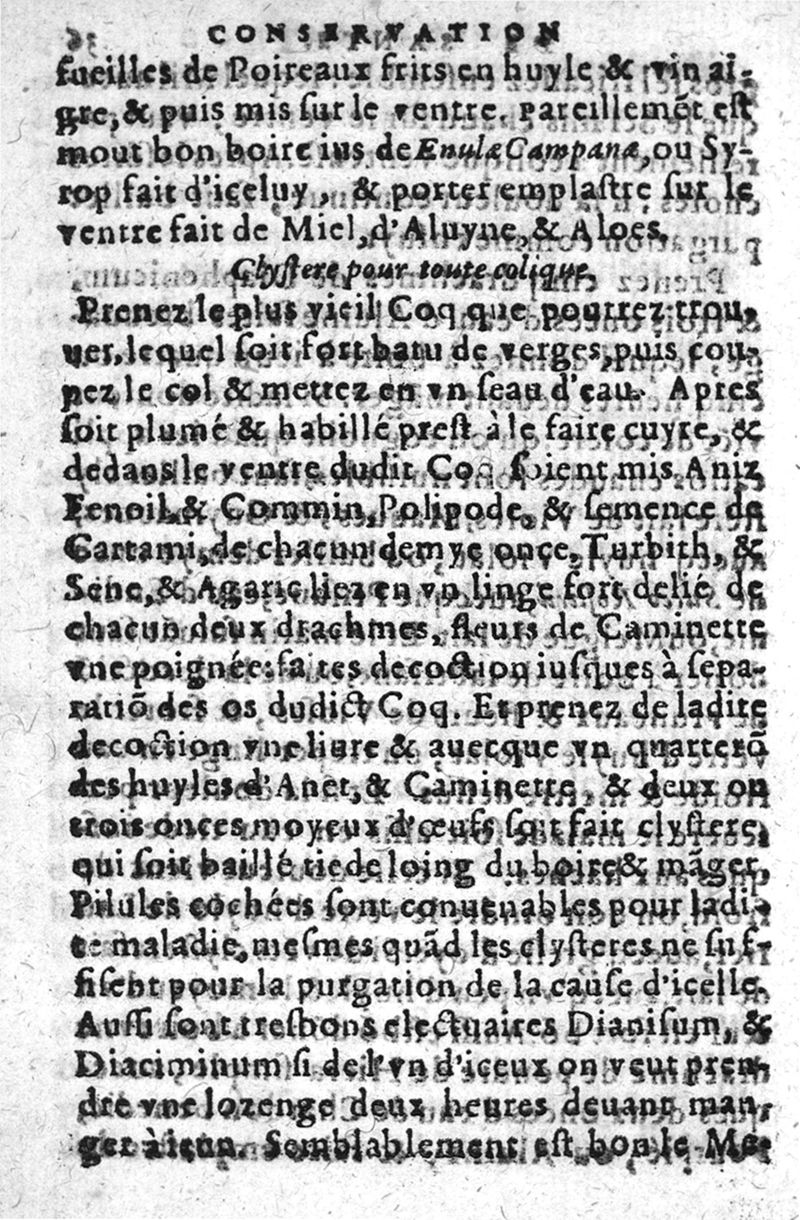 CONSERVATION
fueilles de Poireaux frits en huyle & vin ai-
gre, & puis mis ſur le ventre. Pareillemẽt eſt
mout bon boire ius de Enulæ Campanæ, ou Sy-
rop fait d'iceluy, & porter emplaſtre ſur le
ventre fait de Miel, d'Aluyne, & Aloes.
Clyſtere pour toute colique.
Prenez le plus vieil Coq que pourrez trou-
uer, lequel ſoit fort batu de verges, puis cou-
pez le col & mettez en vn ſeau d'eau. Apres
ſoit plumé & habillé preſt à le faire cuyre, &
dedans le ventre dudit Coq ſoient mis Aniz,
Fenoil, & Commin, Polipode, & ſemence de
Cartami, de chacun demye once, Turbith, &
Sene, & Agaric liez en vn linge fort delié de
chacun deux drachmes, fleurs de Caminette
vne poignée: faites decoction iuſques à ſepa-
ratiõ des os dudict Coq. Et prenez de ladite
decoction vne liure & auecque vn quarterõ
des huyles d'Anet, & Caminette, & deux ou
trois onces moyeux d'œufs ſoit fait clyſtere,
qui ſoit baillé tiede loing du boire & mãger,
Pilules cochées ſont conuenables pour ladi-
te maladie, meſmes quãd les clyſteres ne ſuf-
fiſent pour la purgation de la cauſe d'icelle.
Auſſi ſont treſbons electuaires Dianiſum, &
Diaciminum ſi de l'vn d'iceux on veut pren-
dre vne lozenge deux heures deuant man-
ger à ieun. Semblablement eſt bon le Me-